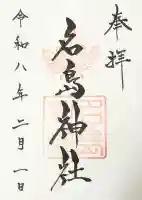 奉拝
名島神社
令和八年二月一日